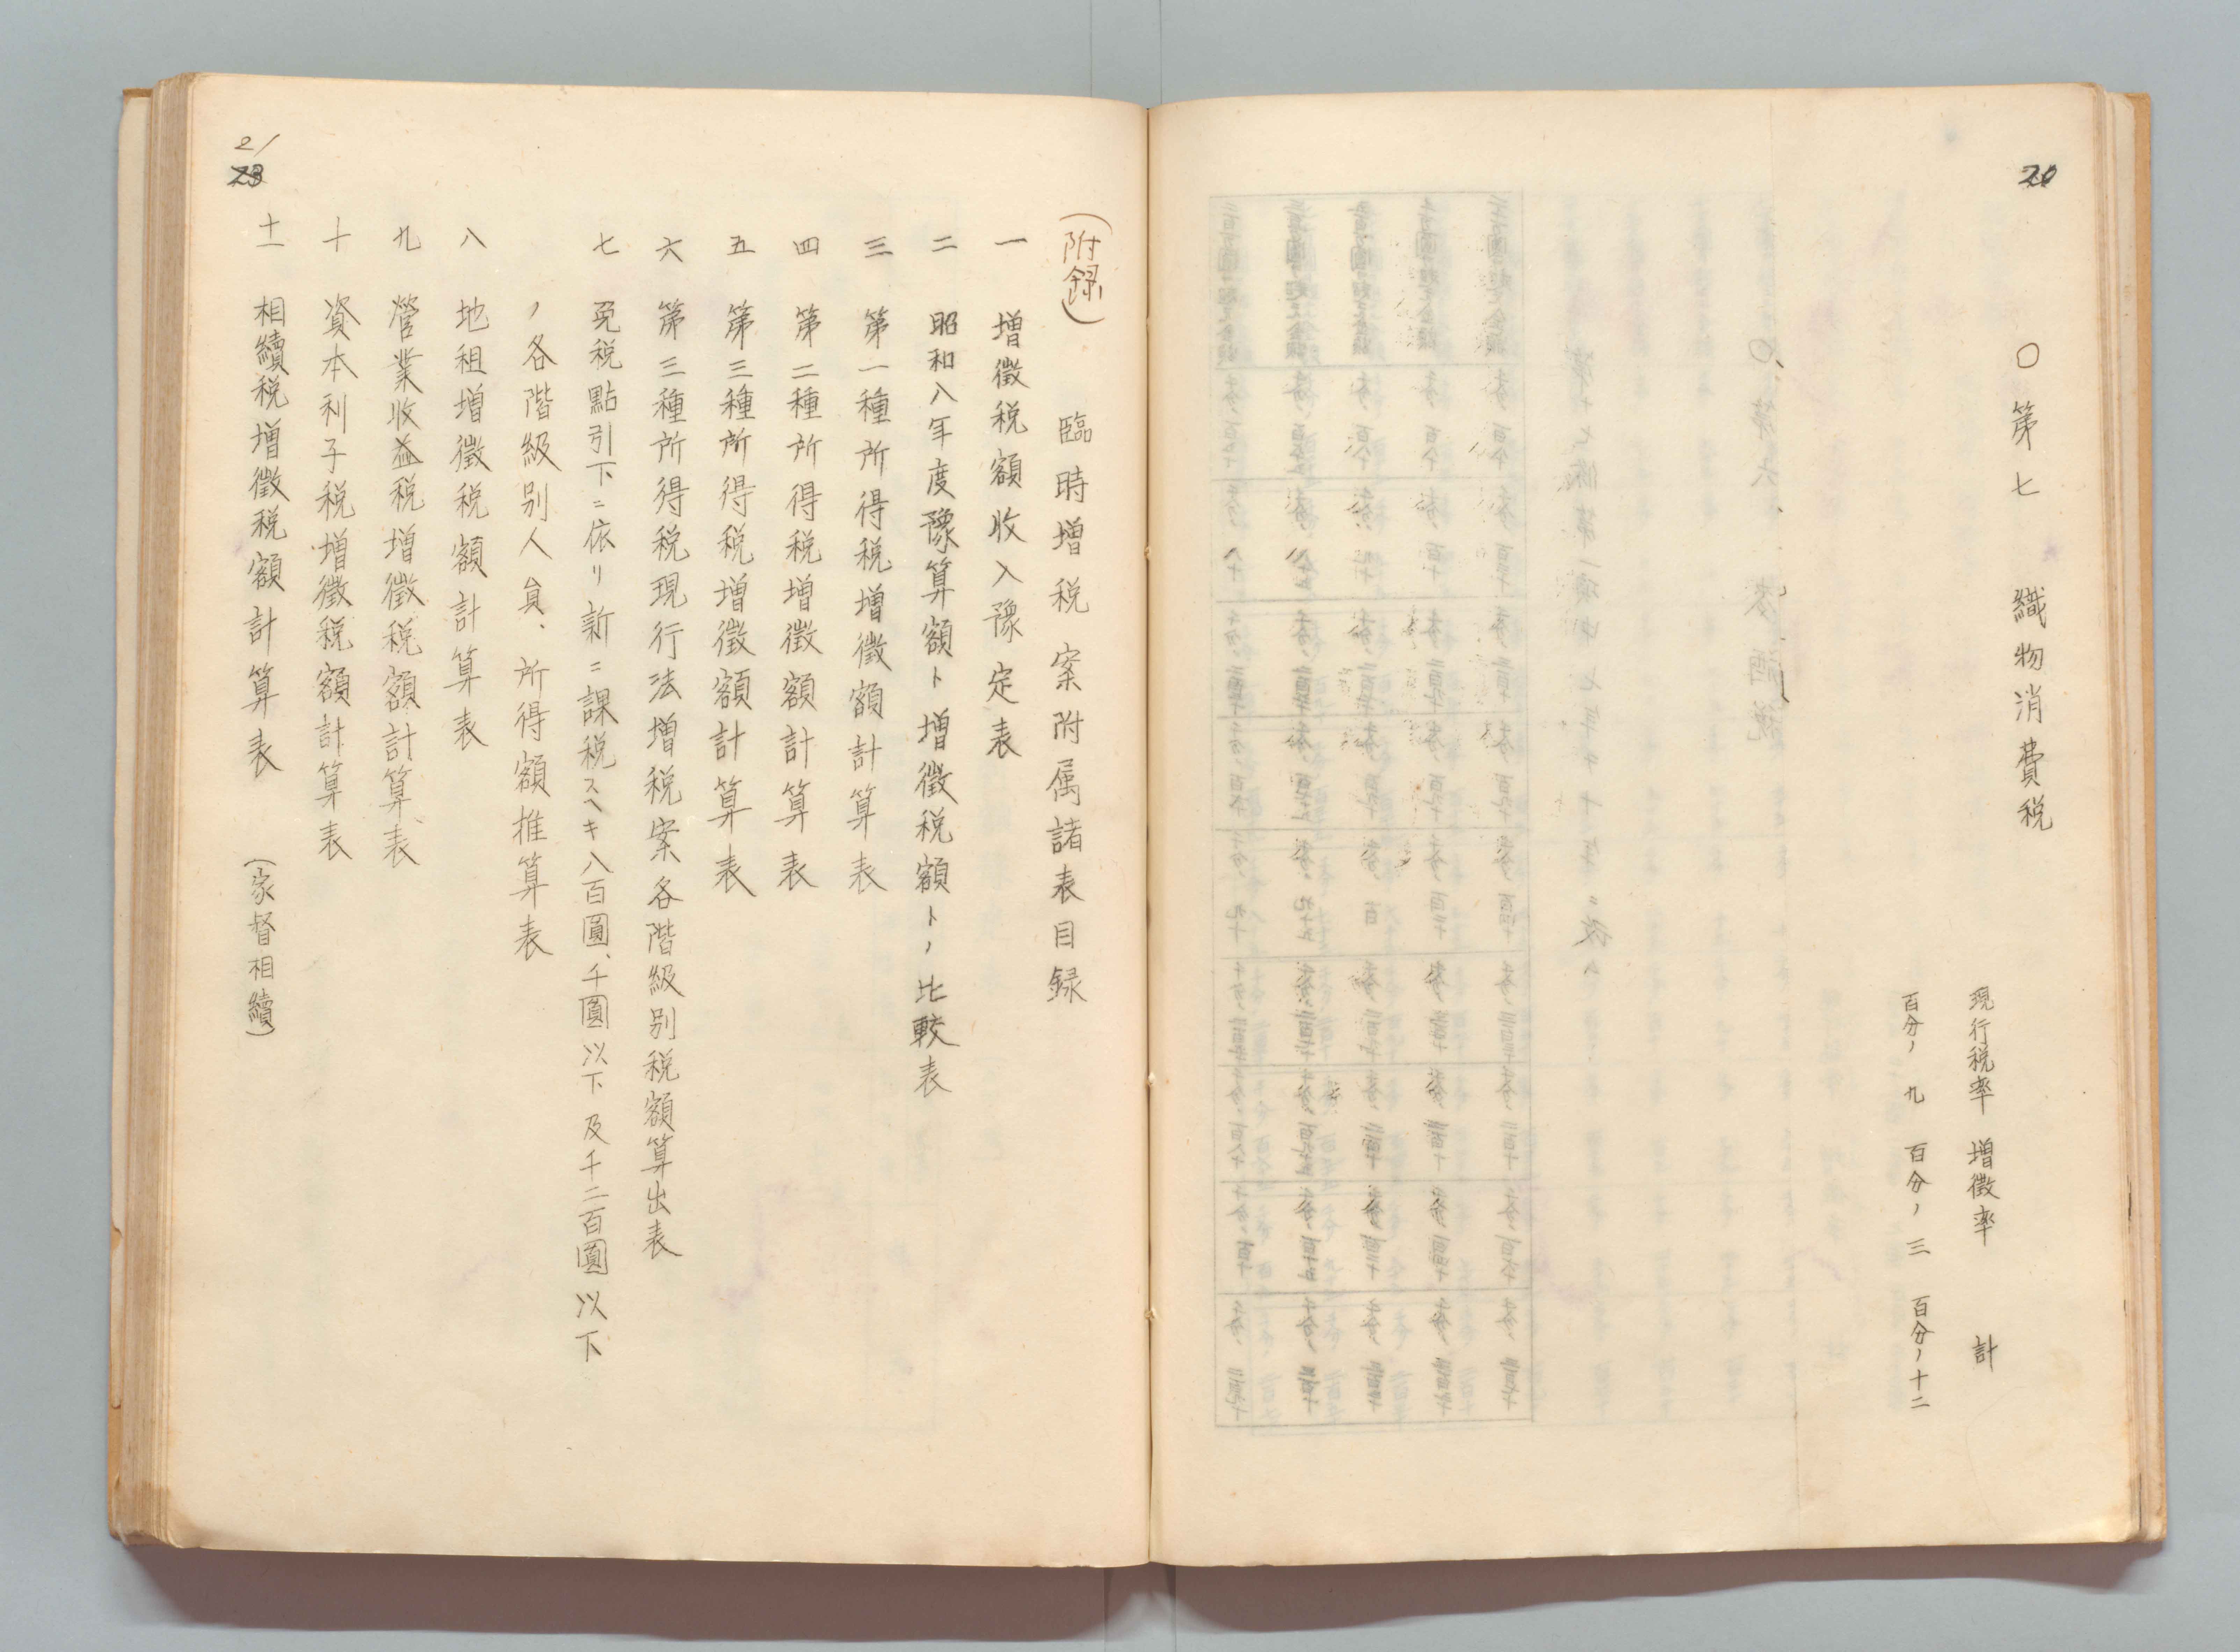 20
〇第七 織物消費税
現行税率 増徴率 計
百分ノ九 百分ノ三 百分ノ十二
21
23
(附録)
臨時増税案附属諸表目録
一 増徴税額收入豫定表
二 昭和八年度豫算額ト増徴税額トノ比較表
三 第一種所得税増徴額計算表
四 第二種所得税増徴額計算表
五 第三種所得税増徴額計算表
六 第三種所得税現行法増税案各階級別税額算出表
七 免税點引下ニ依リ新ニ課税スヘキ八百圓、千圓以下及千二百圓以下
ノ各階級別人員、所得額推算表
八 地租増徴税額計算表
九 營業收益税増徴税額計算表
十 資本利子税増徴税額計算表
十一 相續税増徴税額計算表 (家督相續)